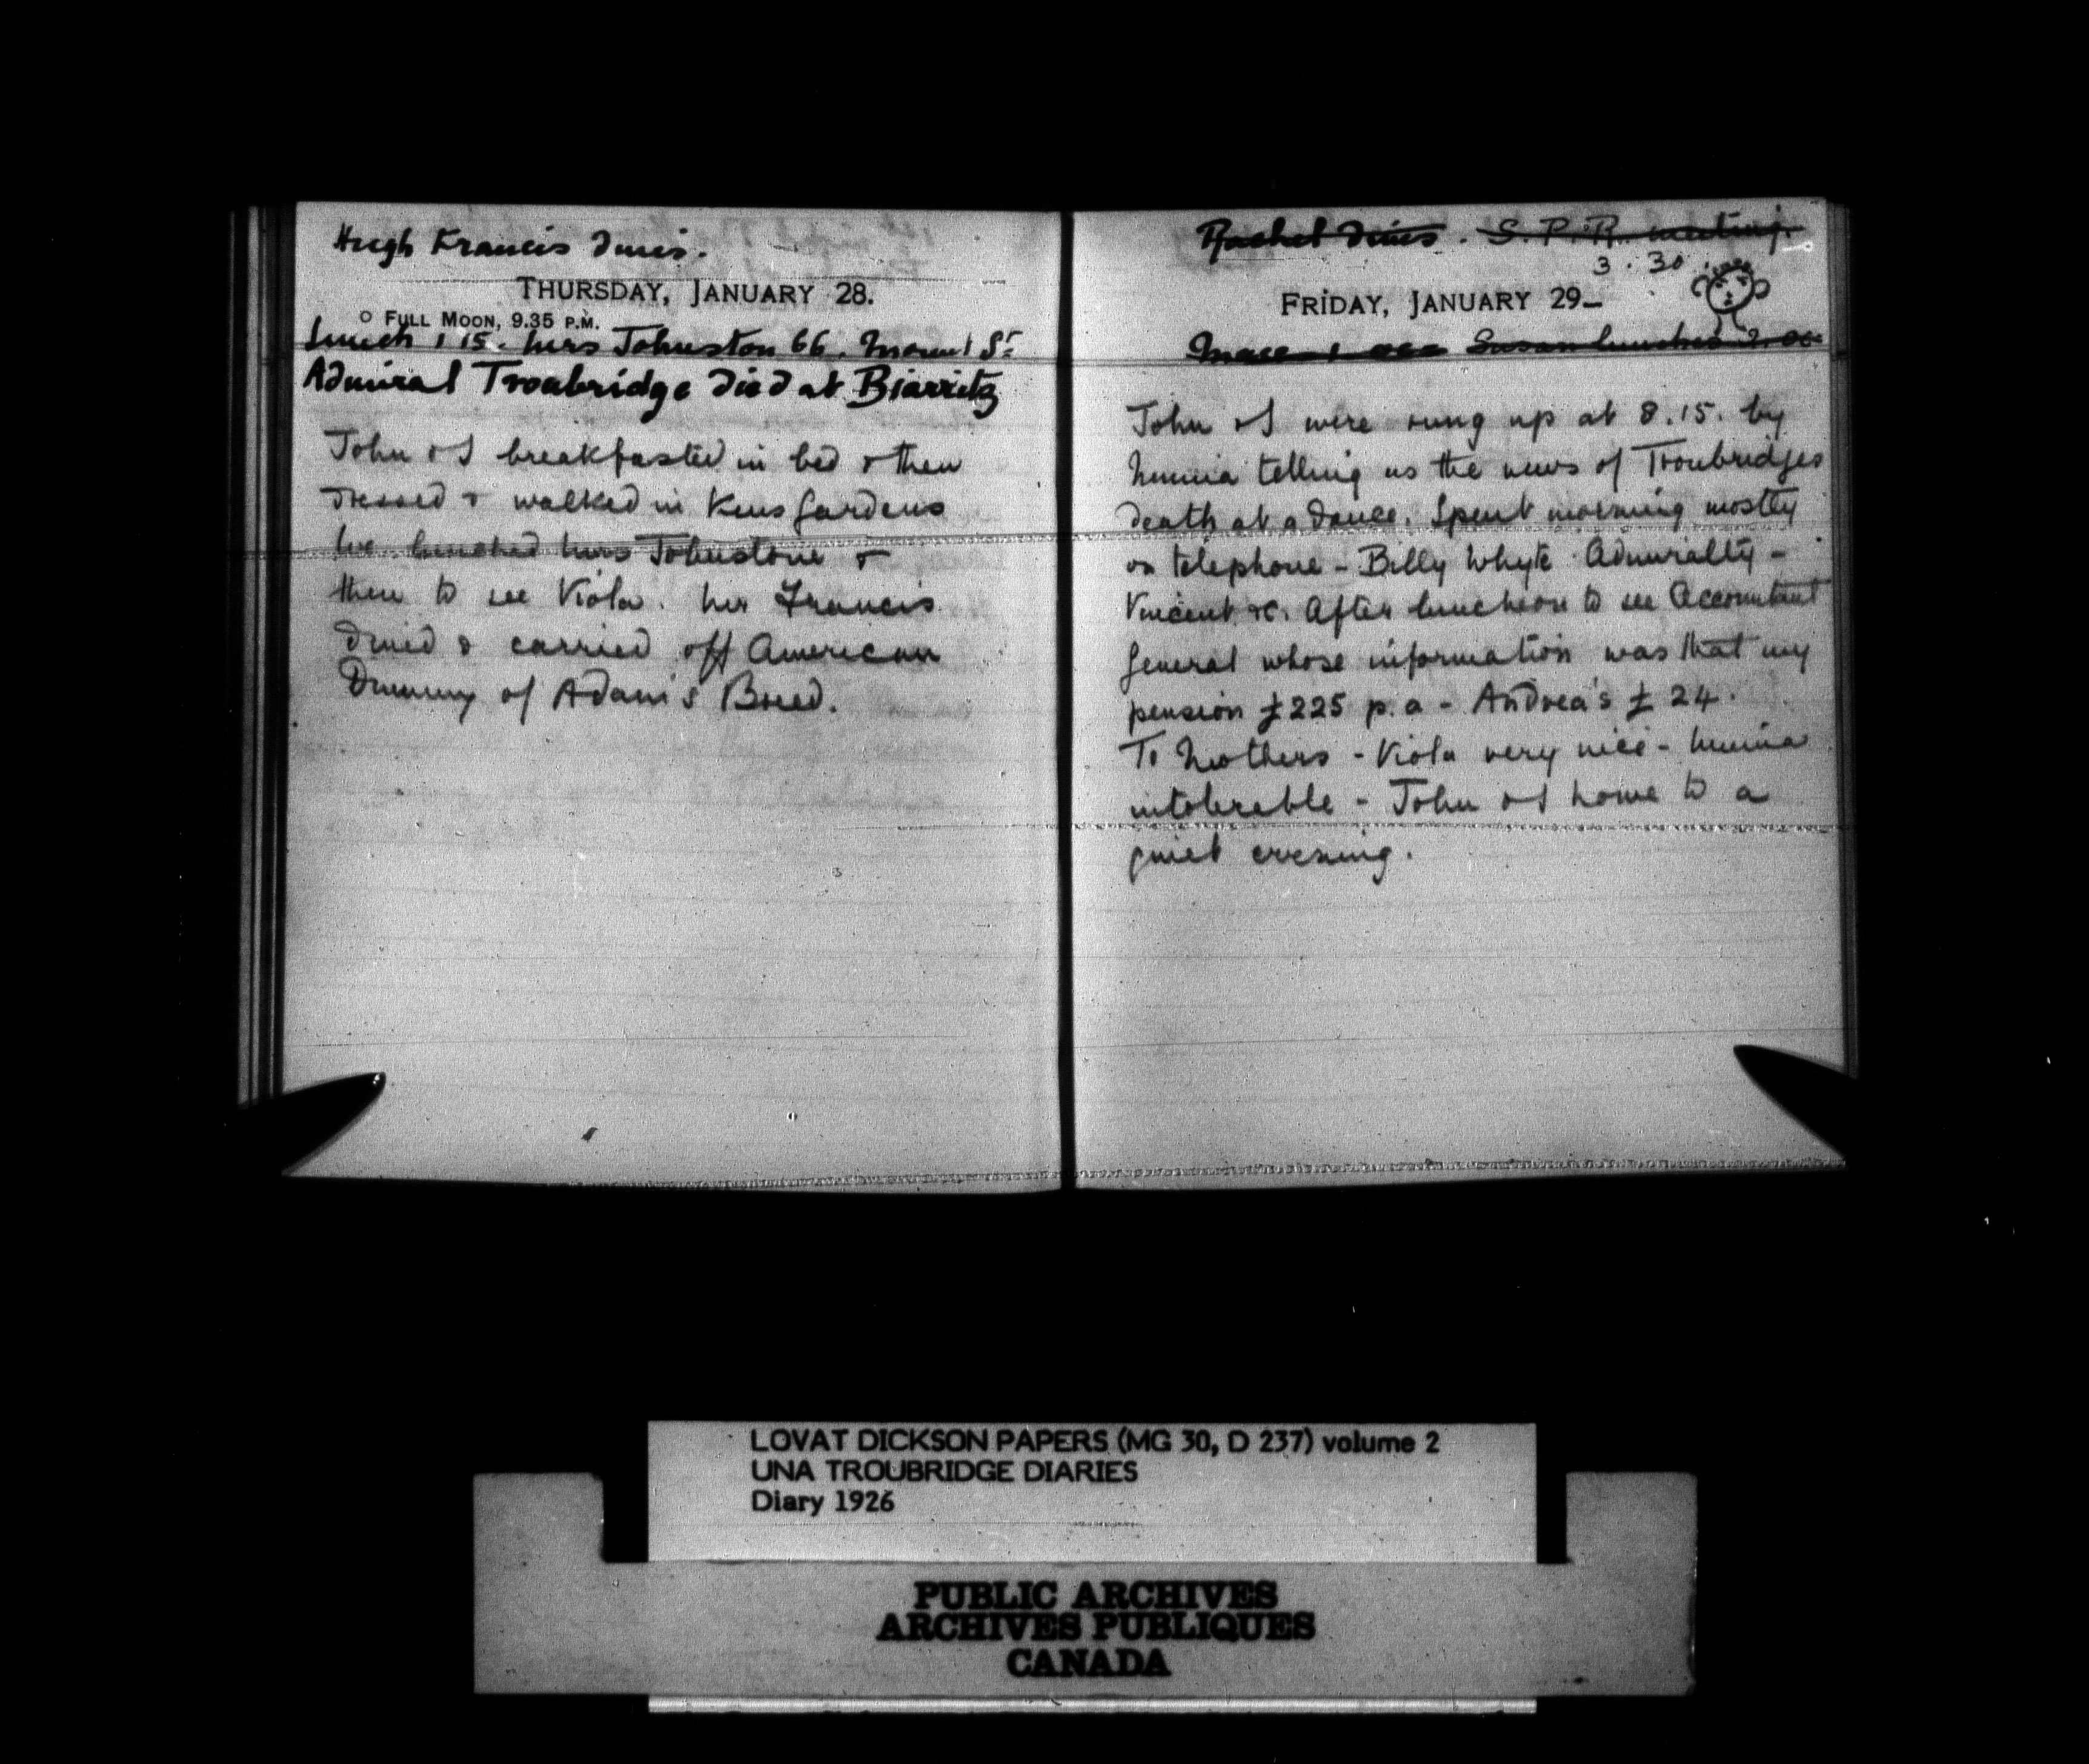 Hugh Francis dines.
THURSDAY, JANUARY 28.
○ FULL MOON, 9.35 P.M.
Lunch 1 15. Mrs Johnston 66. Mount St
Admiral Troubridge died at Biarritz
John & I breakfasted in bed & then
dressed & walked in Kens Gardens
We lunched Mrs Johnstone &
then to see Viola. Mr Francis
dined & carried off American
Dummy of Adam's Breed.
Rachel dines. S.P.R. meeting.
3.30.
FRIDAY, JANUARY 29
Susan lunches
John & I were rung up at 8.15. by
Minna telling us the news of Troubridges
death at a dance. Spent morning mostly
on telephone - Billy Whyte Admiralty -
Vincent &c. After luncheon to see Accountant
General whose information was that my
pension £225 p.a - Andrea's £24.
To Mothers - Viola very nice - Minna
intolerable - John & I home to a
quiet evening.
LOVAT DICKSON PAPERS (MG 30, D 237) volume 2
UNA TROUBRIDGE DIARIES
Diary 1926
PUBLIC ARCHIVES
ARCHIVES PUBLIQUES
CANADA